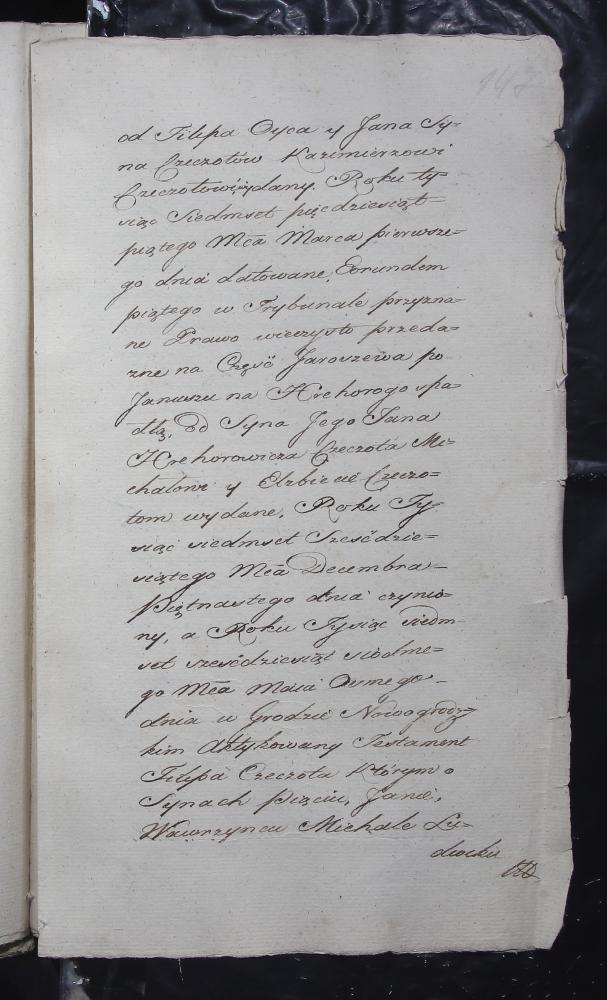 147
od Filipa Oyca y Jana Sy=
na Czeczotów Kazimierzowi
Czeczotowi wydany. Roku ty=
siąc Siedmset pięcdziesiąt=
piątego Mca Marca pierwsze=
go dnia datowane, Eorundem
piątego w Trybunale przyzna=
ne Prawo wieczysto przeda=
zne na Częsć Jaroszewa po
Januszu na Hrehorego spa=
dłą, od Syna Jego Jana
Hrehorowicza Czeczota Mi=
chałowi y Elżbiecie Czeczo=
tom wydane, Roku Ty=
siąc siedmset Szesćdzie=
siątego Mca Decembra=
Piętnastego dnia czynio=
ny, a Roku Tysiąc siedm=
set szesćdziesiąt siodme=
go Mca Maia Osmego=
dnia w Grodzie Nowogrodz=
kim Aktykowany Testament
Filipa Czeczota którym o
Synach Pięciu, Janie,
Wawrzyncu Michale Lu=
dwiku